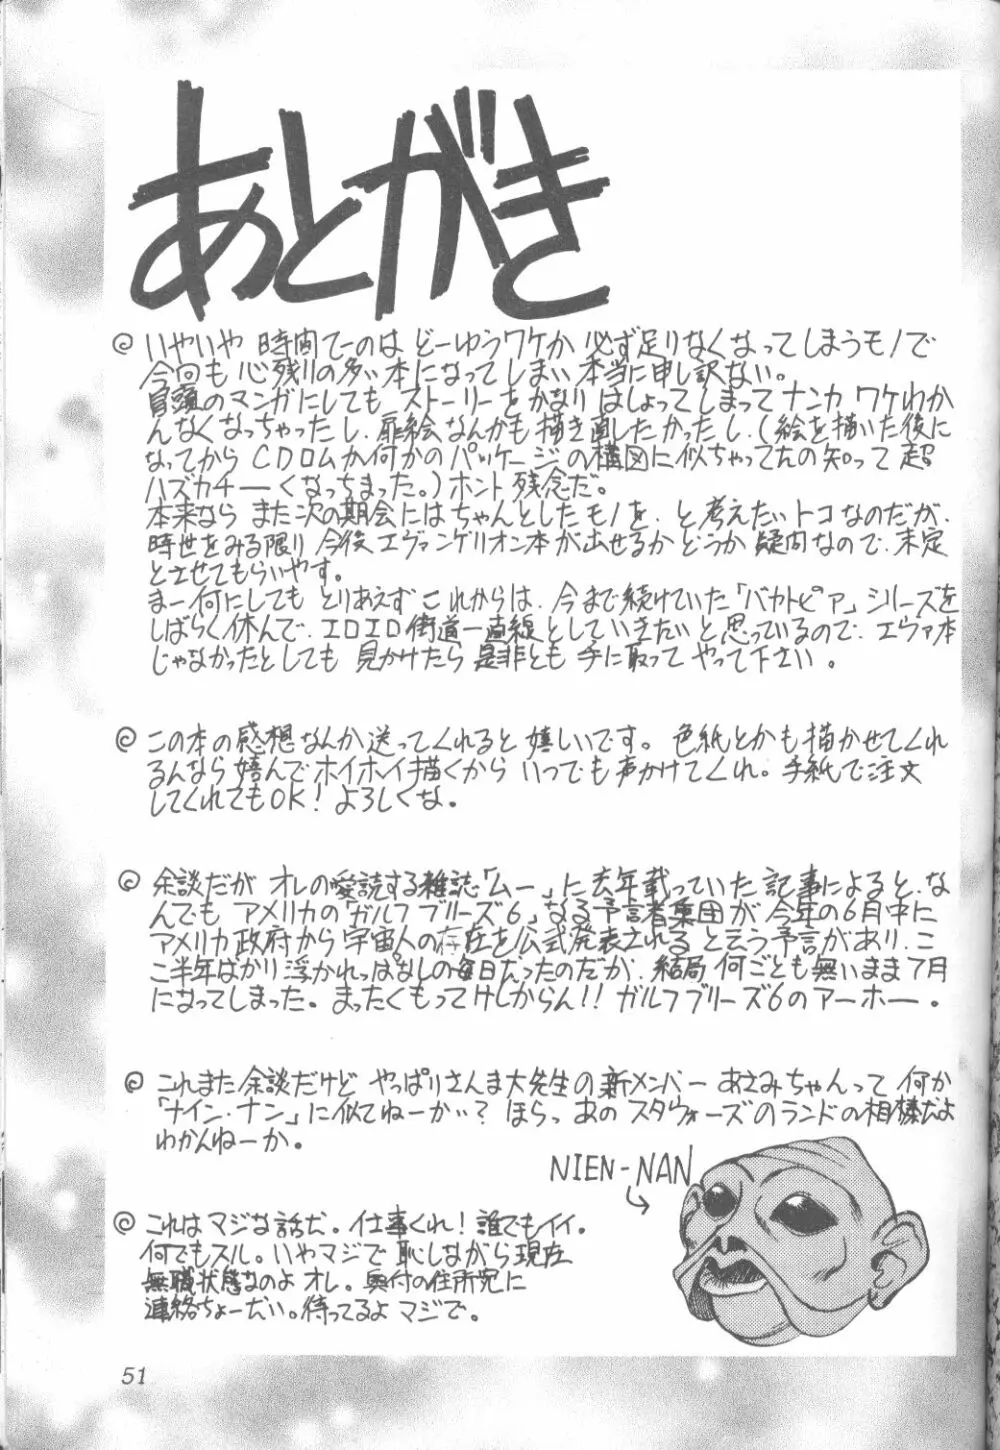 あとがき
いやいや 時間てーのは どーゆうワケか 必ず足りなくなってしまうモノで
今回も 心残りの多い本になってしまい 本当に申し訳ない。
冒頭のマンガにしても ストーリーをかなり はしょってしまって ナンカ ワケわか
んなくなっちゃったし、扉絵なんかも描き直したかったし、(絵を描いた後に
なってから CDロムか何かのパッケージの構図に似ちゃってたの知って 超
ハズカチーくなっちまった。)ホント残念だ。
本来なら また次の期会にはちゃんとしたモノを、と考えたいトコなのだが、
時世をみる限り 今後エヴァンゲリオン本が出せるかどうか 疑問なので、未定
とさせてもらいやす。
まー何にしても とりあえず これからは、今まで続けていた「バカトピア」シリーズを
しばらく休んで、エロエロ街道一直線としていきたいと思っているので、エヴァ本
じゃなかったとしても 見かけたら 是非とも 手に取って やって下さい。
この本の感想なんか送ってくれると 嬉しいです。色紙とかも描かせてくれ
るんなら 嬉んでホイホイ描くから いつでも声かけてくれ。手紙で注文
してくれてもOK! よろしくな。
余談だが オレの愛読する雑誌「ムー」に去年載っていた記事によると、な
んでも アメリカの「ガルフブリーズ6」なる予言者集団が 今年の6月中に
アメリカ政府から 宇宙人の存在を公式発表されると言う予言があり、こ
こ半年ばかり浮かれっぱなしの毎日だったのだが、結局 何ごとも無いまま 7月
になってしまった。まったくもってけしからん!! ガルフブリーズ6のアーホー。
これまた余談だけど やっぱりさんま大先生の新メンバー あさみちゃんって 何か
「ナイン・ナン」に似てねーかい? ほらっ あの スタウォーズのランドの相棒だよ
わかんねーか。
NIEN-NAN
これはマジな話だ。仕事くれ! 誰でもイイ。
何でもスル。いやマジで 恥しながら現在
無職状態なのよ オレ。奥付の住所宛に
連絡ちょーだい。待ってるよ マジで。
51